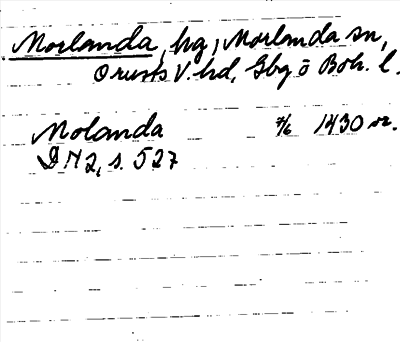 Morlanda, hg, Morlanda sn,
Orusts V. hd, Gbg o Boh. l.
Molanda 7/6 1430 or.
DN 2, s. 527